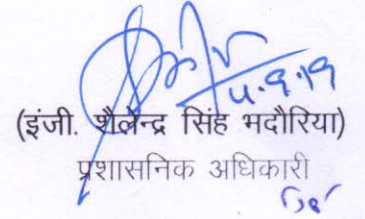 4.9.19
(इंजी. शैलेन्द्र सिंह भदौरिया)
प्रशासनिक अधिकारी